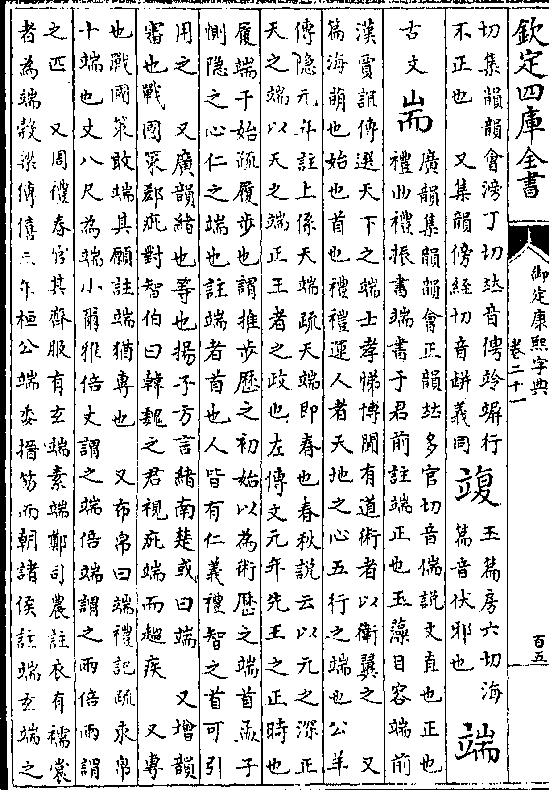 欽定四庫全書
御定康熙字典
卷二十一
百五
切集韻韻會滂丁切𠀤音俜竛竮行
不正也 又集韻傍經切音缾義同 竧 玉篇房六切海
篇音伏邪也 端
古文 耑 廣韻集韻韻會正韻𠀤多官切音偳說文直也正也
禮曲禮振書端書于君前註端正也玉藻目容端前
漢賈誼傳選天下之端士孝悌博聞有道術者以衛翼之 又
篇海萌也始也首也禮禮運人者天地之心五行之端也公羊
傳隱元年註上係天端疏天端即春也春秋說云以元之深正
天之端以天之端正王者之政也左傳文元年先王之正時也
履端于始疏履步也謂推步歷之初始以為術歷之端首孟子
惻隱之心仁之端也註端者首也人皆有仁義禮智之首可引
用之 又廣韻緒也等也揚子方言緒南楚或曰端 又增韻
審也戰國策郄疵對智伯曰韓魏之君視疵端而趨疾 又專
也戰國策敢端其願註端猶專也 又布帛曰端禮記疏束帛
十端也丈八尺為端小爾雅倍丈謂之端倍端謂之兩倍兩謂
之匹 又周禮春官其齊服有玄端素端鄭司農註衣有襦裳
者為端穀梁傳僖三年桓公端委搢笏而朝諸侯註端玄端之